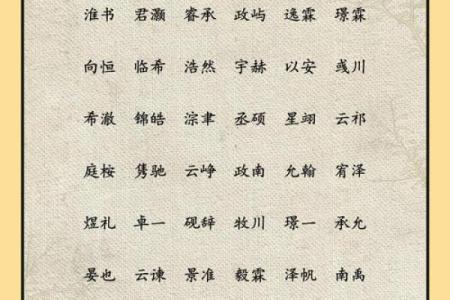 淮书 君灏 睿承 政屿 逸霖 璟霖
向恒 临希 浩然 宇赫 以安 彧川
希澈 锦皓 淙聿 丞硕 星翊 云祁
庭桉 隽驰 云峥 政南 允翰 宥泽
煜礼 卓一 砚辞 牧川 璟一 承允
晏也 云谏 景淮 毅霖 泽帆 南禹